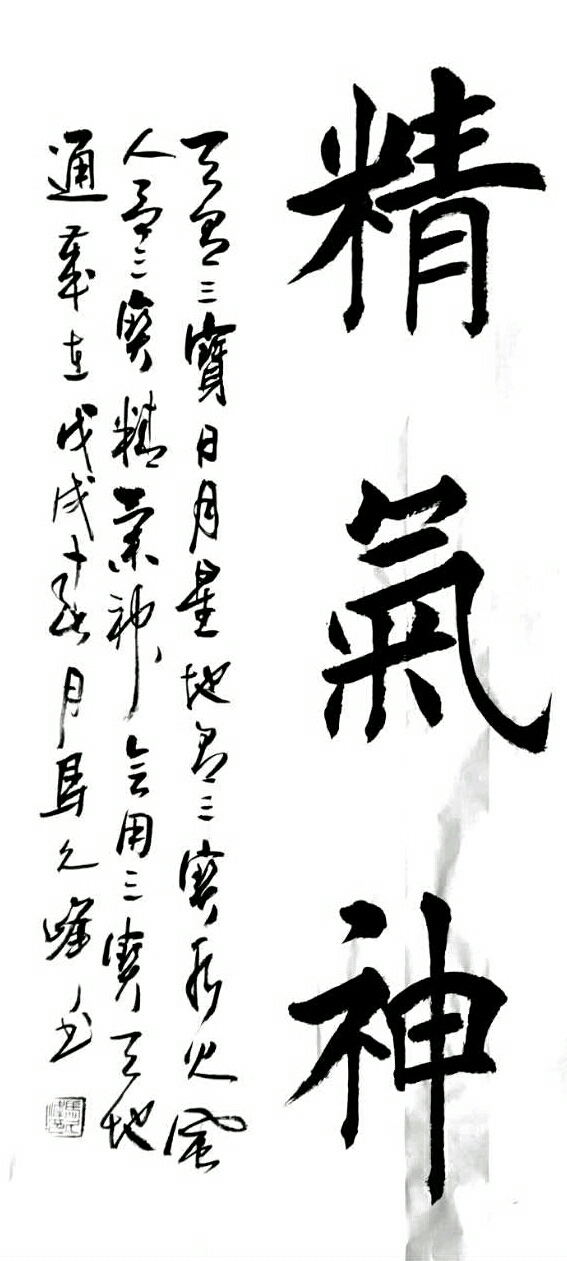 精氣神
天有三寶日月星地有三寶水火風
人有三寶精氣神會用三寶天地
通歲在戊戌十月馬元峰書